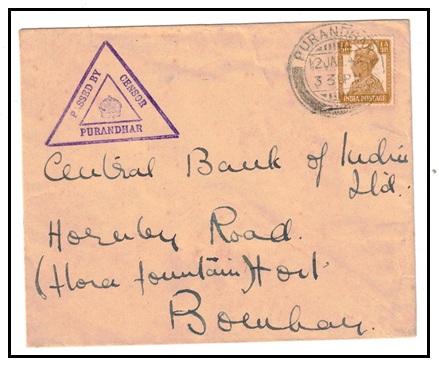 PASSED BY CENSOR
PURANDHAR
PURANDHAR
12 JAN
3 30 P
INDIA POSTAGE
Central Bank of India
Ltd.
Hornby Road.
(flora fountain) Fort
Bombay.